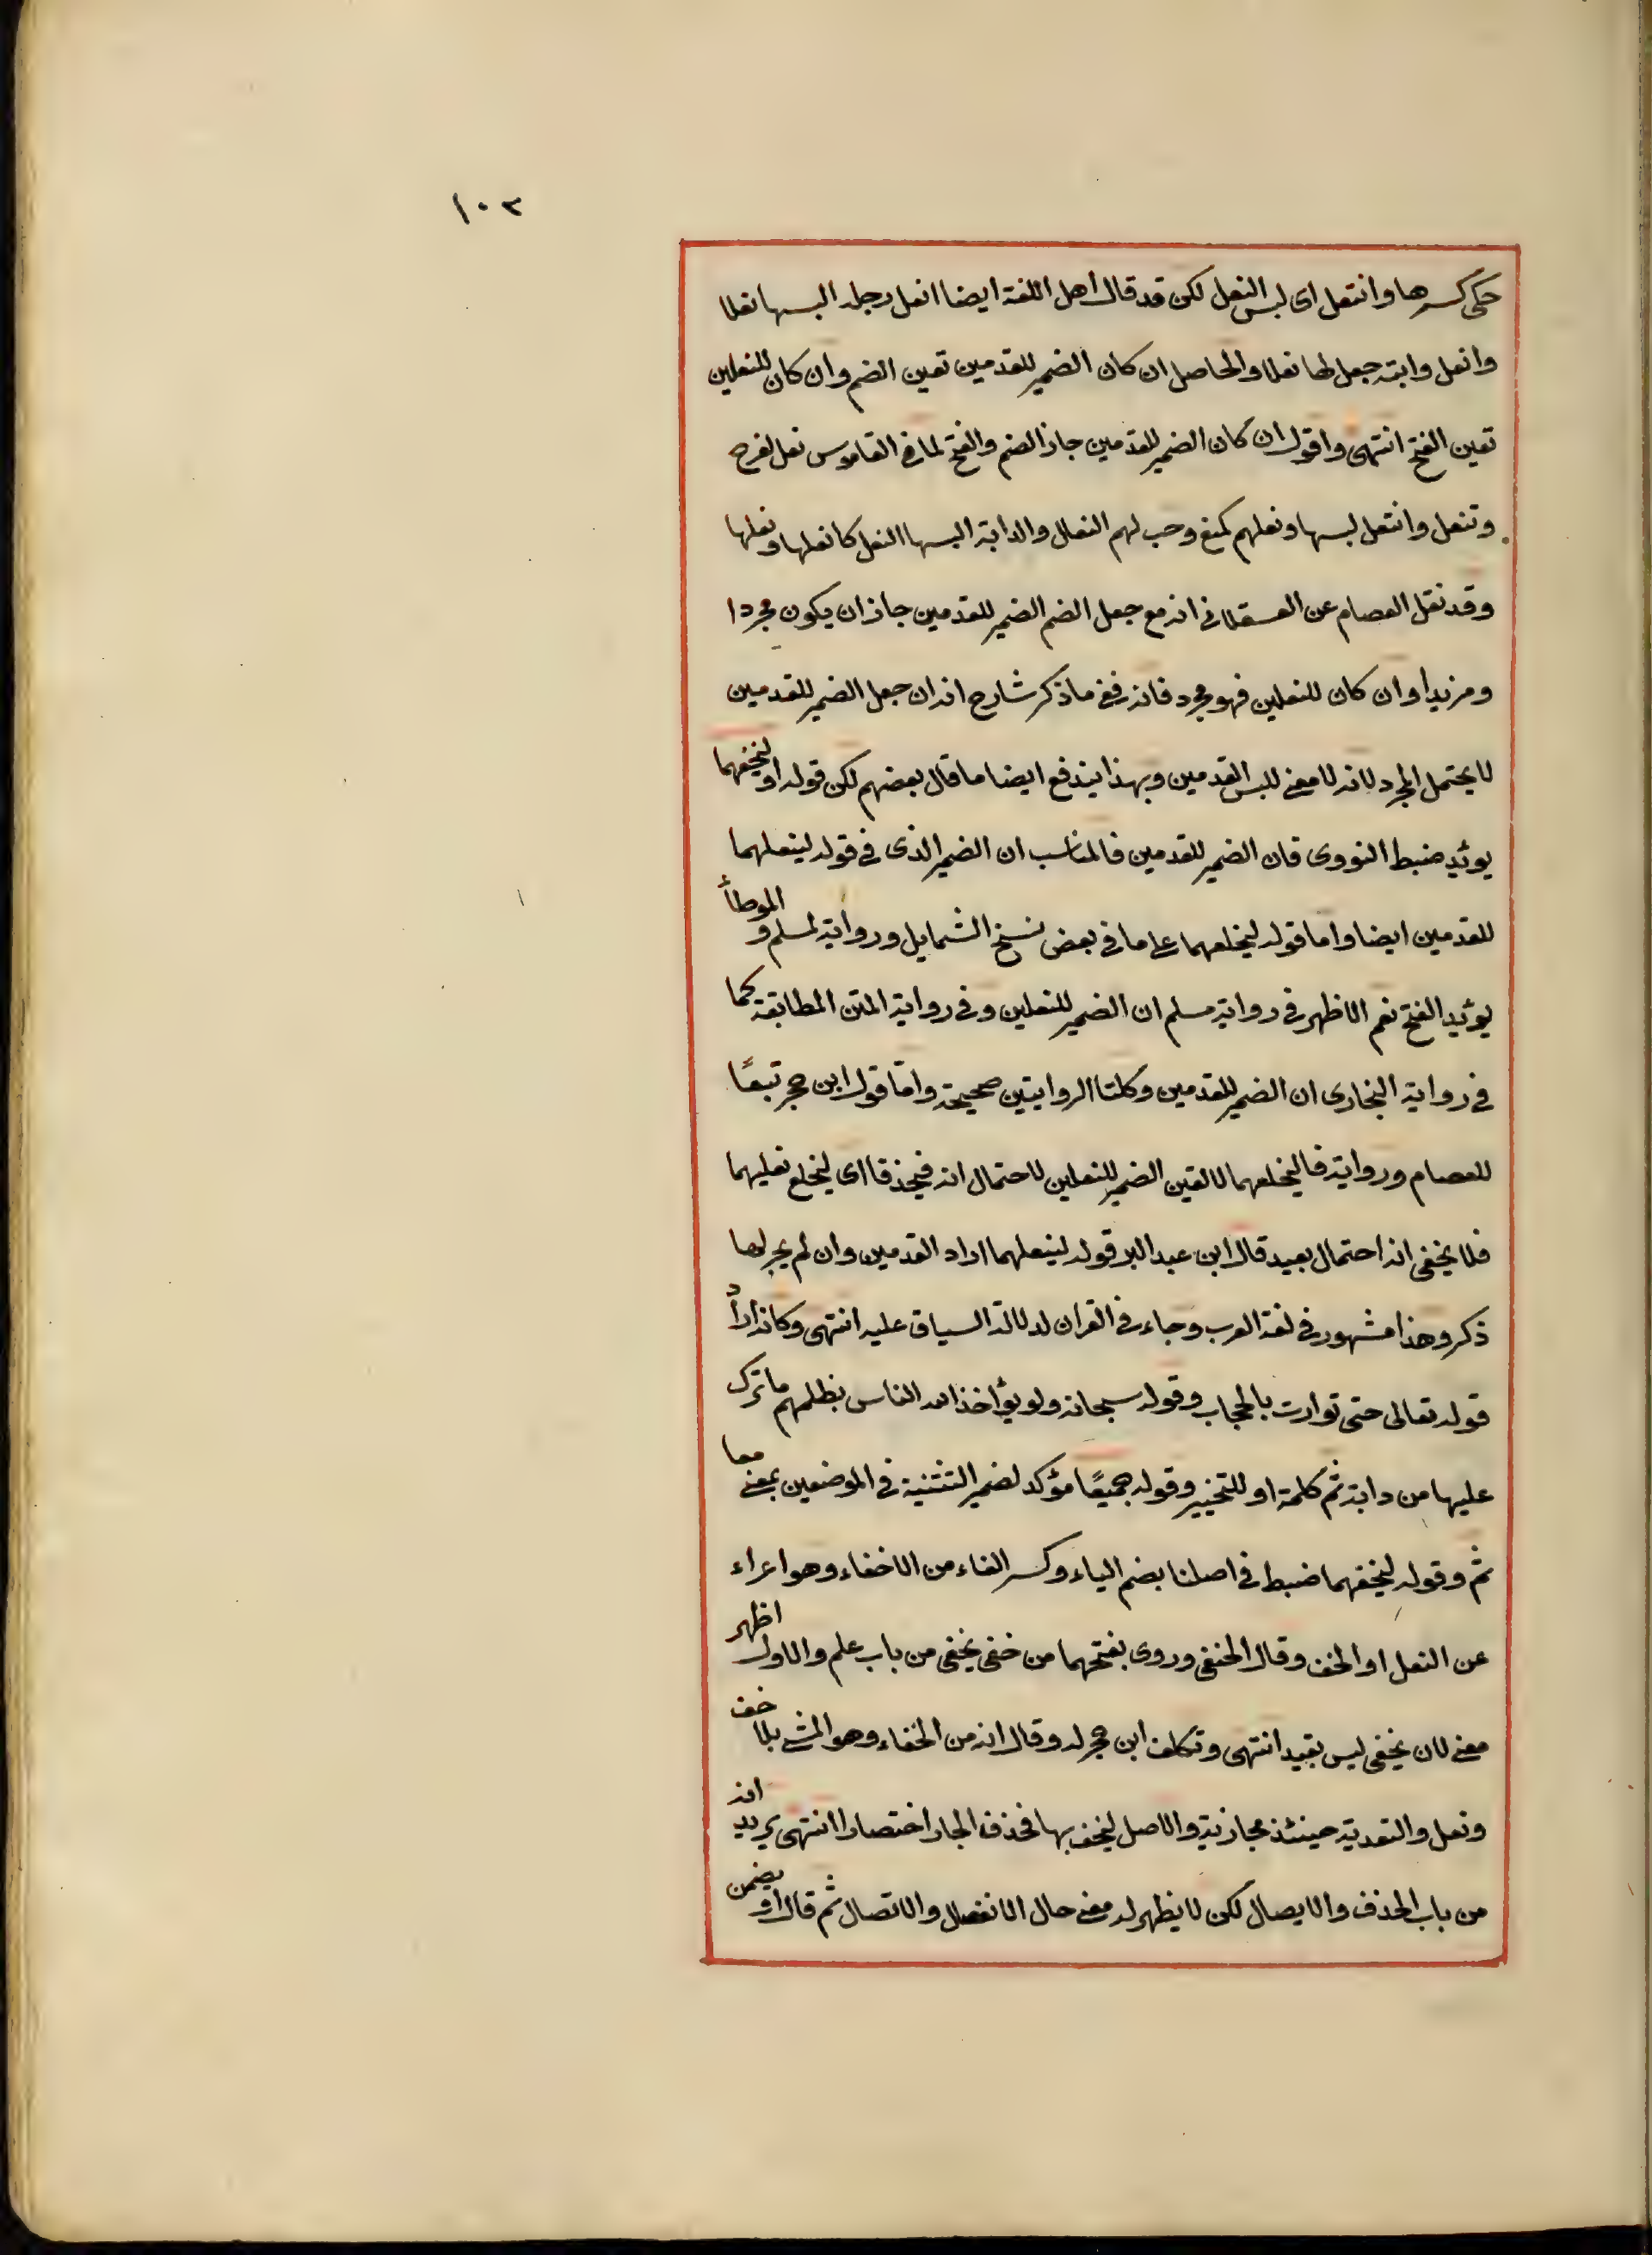 ١٠٢
حكى كسرها وانتعل اى لبس النعل لكن قد قال اهل اللغة ايضا انعل رجله البسها نعلا
وانعل دابته جعل لها نعلا والحاصل ان كان الضمير للقدمين تعين الضم وان كان للنعلين
تعين الفتح انتهى واقول ان كان الضمير للقدمين جاز الضم والفتح لما فى القاموس نعل لفرح
وتنعل وانتعل لبسها ونعلهم كمنع وهب لهم النعال والدابة البسها النعل كانعلها ونعلها
وقد نقل العصام عن العسقلانى انه مع جعل الضم الضمير للقدمين جاز ان يكون مجردا
ومزيدا وان كان للنعلين فهو مجرد فاندفع ما ذكر شارح انه ان جعل الضمير للقدمين
لا يحتمل المجرد لانه لا معنى للبس القدمين وبهذا يندفع ايضا ما قال بعضهم لكن قوله او ليحفهما
يوئيد ضبط النووى فان الضمير للقدمين فالمناسب ان الضمير الذى فى قوله لينعلهما
للقدمين ايضا واما قوله ليخلعهما على ما فى بعض نسخ الشمايل ورواية لمسلم و الموطأ
يوئيد الفتح نعم الاظهر فى رواية مسلم ان الضمير للنعلين وفى رواية المتن المطابقة كما
فى رواية البخارى ان الضمير للقدمين وكلتا الروايتين صحيحة وامّا قول ابن حجر تبعًا
للعصام ورواية فاليخلعهما لا لقين الضمير للنعلين لاحتمال انه فيحذفا اى ليخلع نعليهما
فلا يخفى انه احتمال بعيد قال ابن عبد البر قوله لينعلهما اراد القدمين وان لم يجر لها
ذكر وهذا مشهور فى لغة العرب وجاء فى القران لدلالة السياق عليه انتهى وكانه اراد
قوله تعالى حتى توارت بالحجاب وقوله سبحانه ولو يؤاخذ الله الناس بظلمهم ما ترك
عليها من دابة ثم كلمة او للتخيير وقوله جميعًا مؤكد لضمير التثنية فى الموضعين بمعنى معا
ثم وقوله ليحفهما ضبط فى اصلنا بضم الياء وكسر الفاء من الاحفاء وهو اعراء
عن النعل او الخف وقال الحنفى وروى بفتحهما من حفى يحفى من باب علم والاول اظهر
معنى لان يحفى ليس بقيد انتهى وتكلف ابن حجر له وقال انه من الحفاء وهو المشى بلا خف
ونعل والتعدية حينئذ مجازية والاصل ليحف بها فحذف الجار اختصارا انتهى يريد انه
من باب الحذف والايصال لكن لا يظهر له معنى حال الانفصال والاتصال ثم قال او يضمن